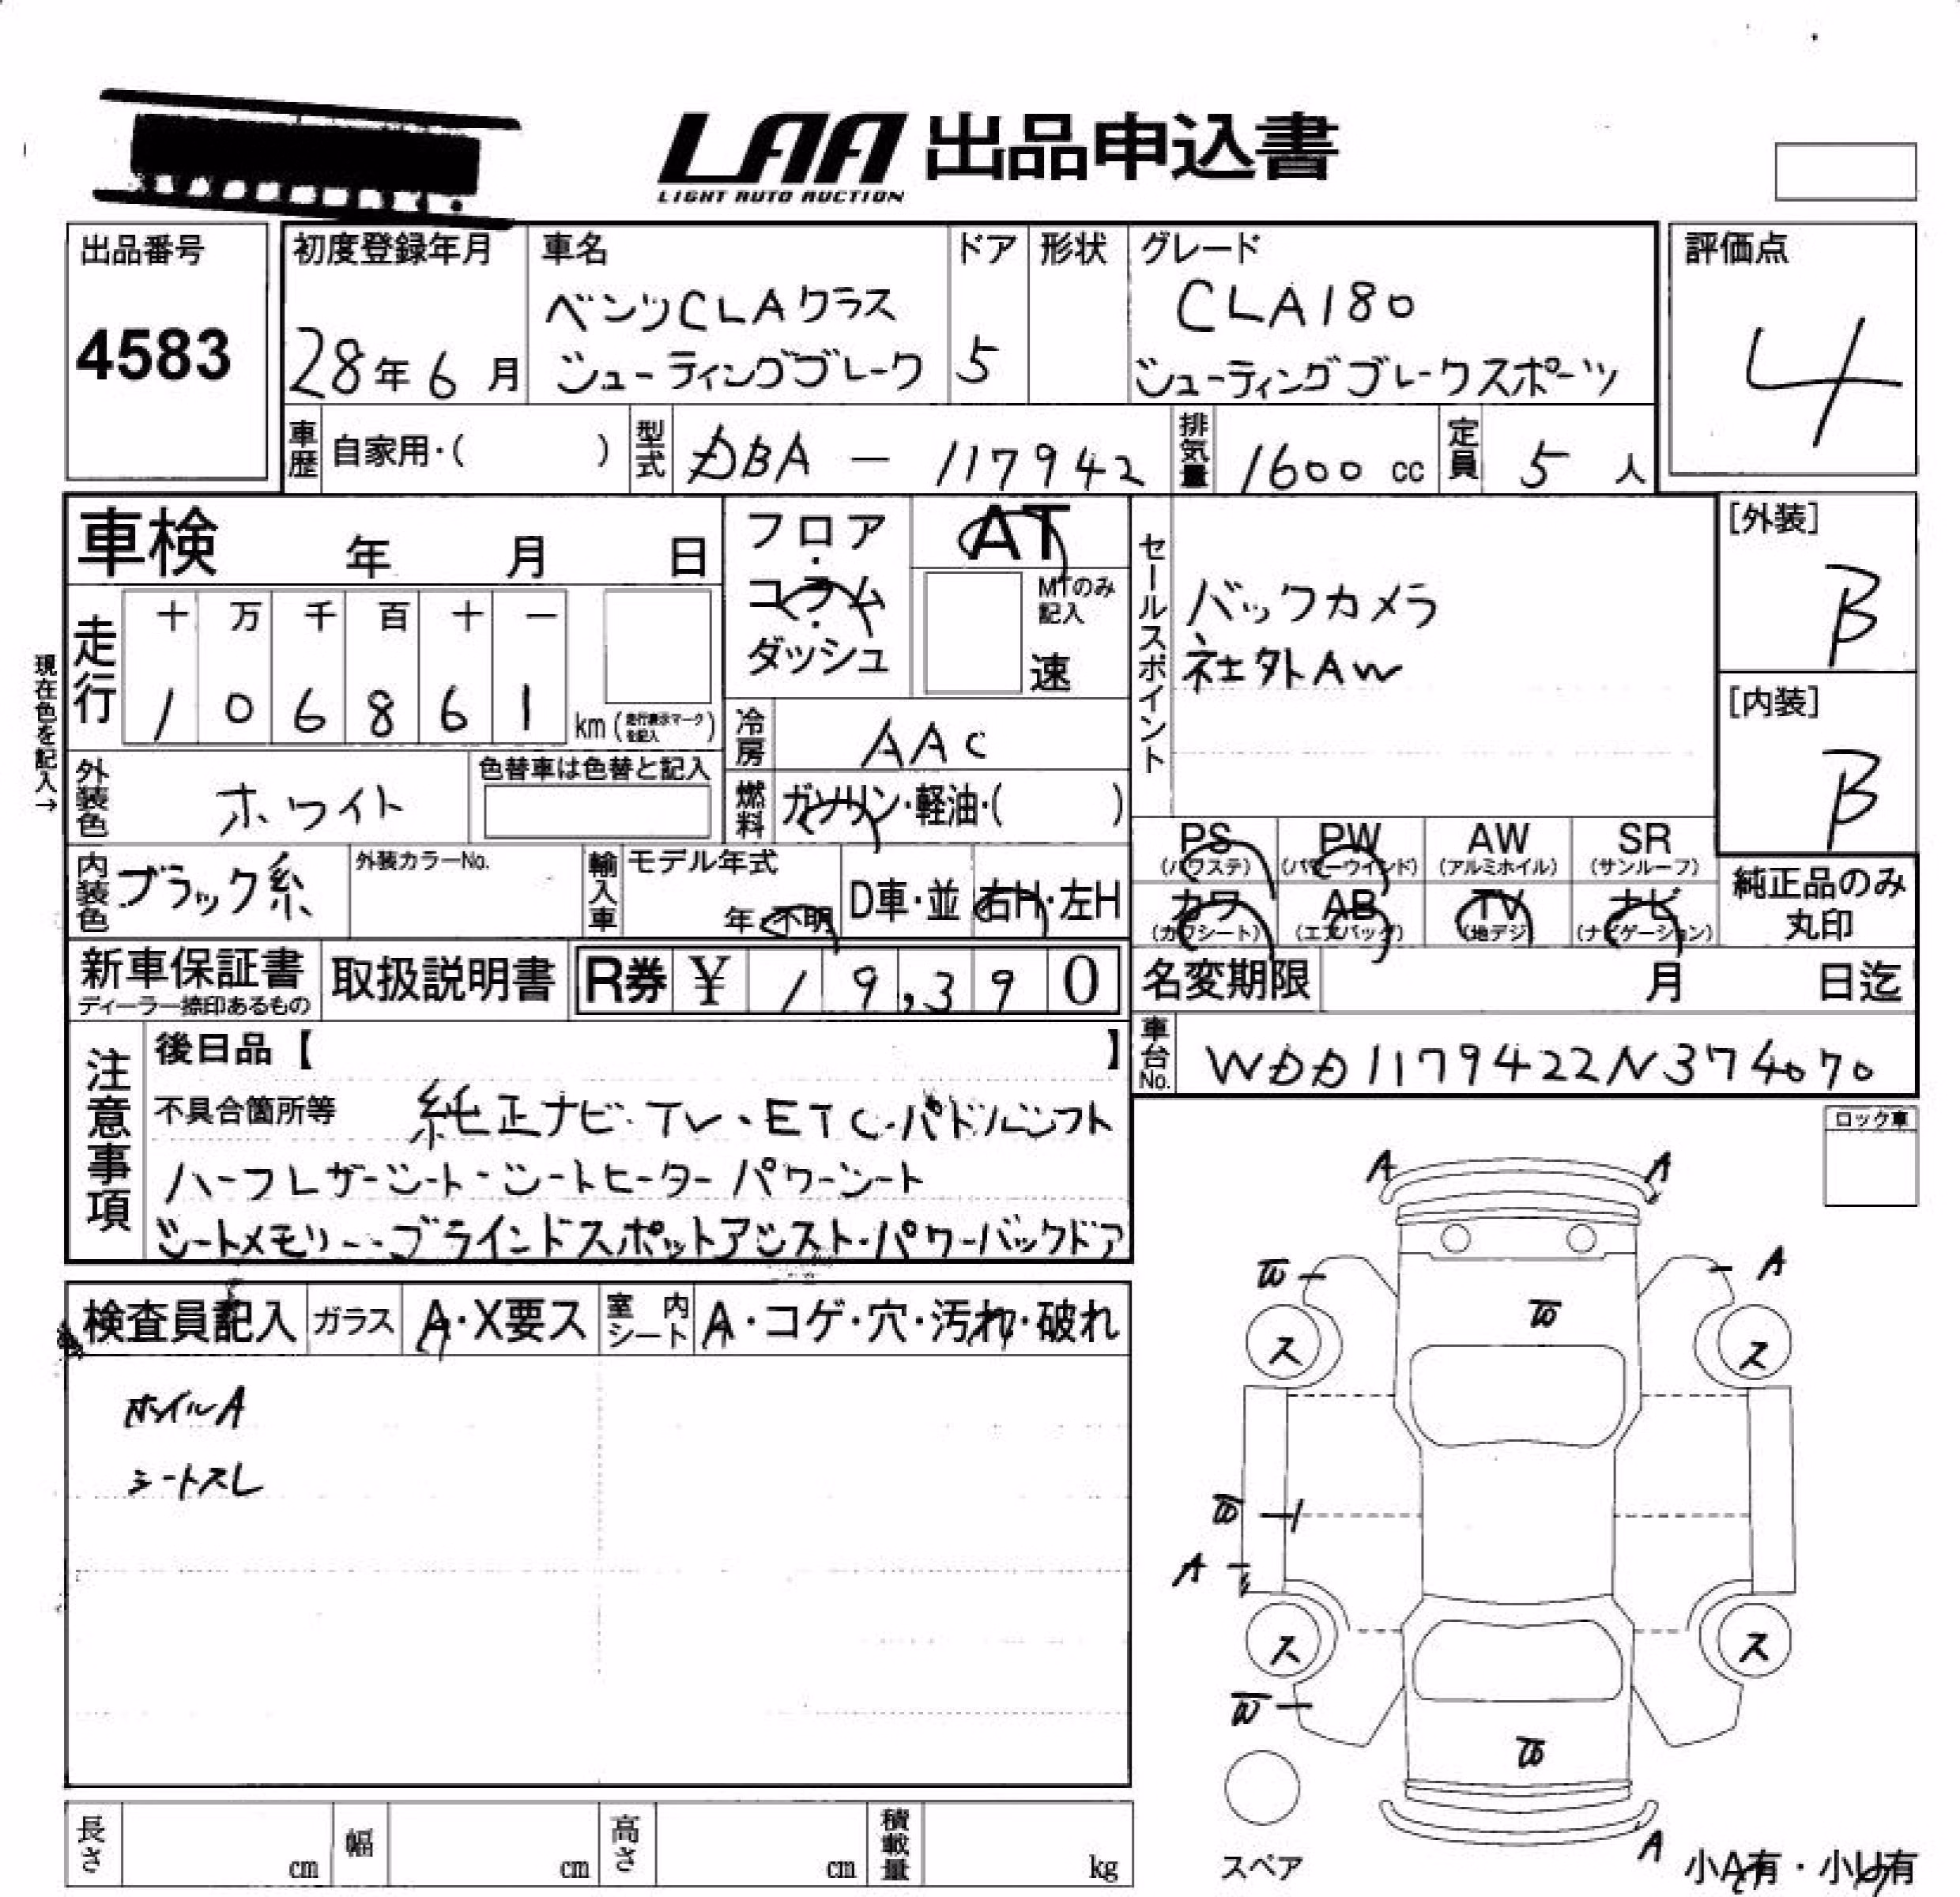 LAA 出品申込書
LIGHT AUTO AUCTION
出品番号
4583
初度登録年月
28年6月
車名
ベンツCLAクラス
シューティングブレーク
ドア
5
形状
グレード
CLA180
シューティングブレークスポーツ
評価点
4
車歴 自家用・( )
型式 DBA - 117942
排気量 1600 cc
定員 5 人
車検 年 月 日
現在色を記入→
走行
十 万 千 百 十 一
1 0 6 8 6 1
km (走行表示マークを記入)
フロア
・
コラム
・
ダッシュ
AT
MTのみ
記入
速
冷房 AAC
燃料 ガソリン・軽油・( )
セールスポイント
バックカメラ
社外AW
[外装]
B
[内装]
B
外装色 ホワイト
色替車は色替と記入
内装色 ブラック系
外装カラーNo.
輸入車 モデル年式
年・不明
D車・並 右H・左H
PS PW AW SR
(パワステ) (パワーウインド) (アルミホイル) (サンルーフ)
カワ AB TV ナビ
(カワシート) (エアバッグ) (地デジ) (ナビゲーション)
純正品のみ
丸印
新車保証書
ディーラー捺印あるもの
取扱説明書
R券 ¥ 19,390
名変期限 月 日迄
車台No. WDD1179422N374070
注意事項
後日品【 】
不具合箇所等 純正ナビ・TV・ETC・パドルシフト
ハーフレザーシート・シートヒーター パワーシート
シートメモリー・ブラインドスポットアシスト・パワーバックドア
ロック車
検査員記入 ガラス A・X要ス 室内シート A・コゲ・穴・汚れ・破れ
ホイルA
シートスレ
A A
A
ス ス
A
ス ス
A
スペア
小A有・小U有
長さ cm 幅 cm 高さ cm 積載量 kg